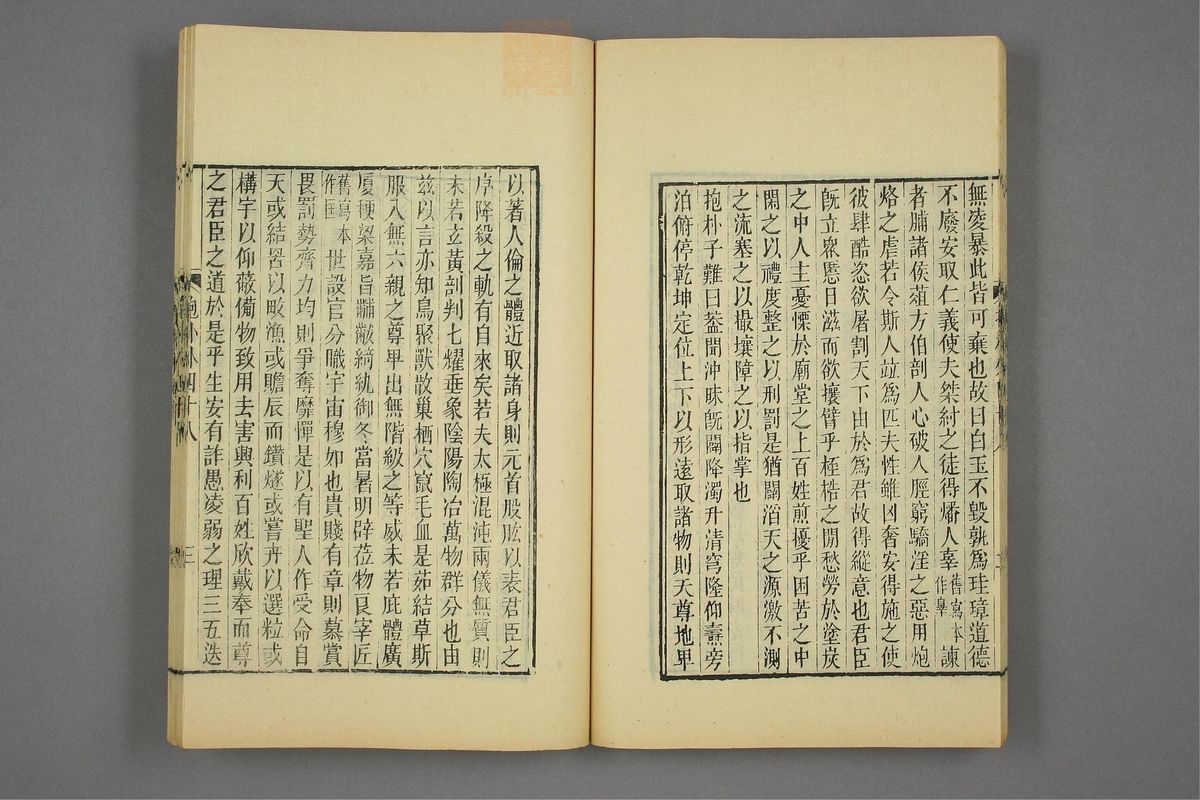 無凌暴此皆可棄也故曰白玉不毀孰爲珪璋道德
不廢安取仁義使夫桀紂之徒得燔人辜舊寫本作辠諫
者脯諸侯葅方伯剖人心破人脛窮驕淫之惡用炮
烙之虐若令斯人竝爲匹夫性雖凶奢安得施之使
彼肆酷恣欲屠割天下由於爲君故得縱意也君臣
旣立衆慝日滋而欲攘臂乎桎梏之閒愁勞於塗炭
之中人主憂慄於廟堂之上百姓煎擾乎困苦之中
閑之以禮度整之以刑罰是猶闢滔天之源激不測
之流塞之以撮壤障之以指掌也
抱朴子難曰葢聞沖昧旣闢降濁升清穹隆仰燾旁
泊俯停乾坤定位上下以形遠取諸物則天尊地卑
以著人倫之體近取諸身則元首股肱以表君臣之
序降殺之軌有自來矣若夫太極混沌兩儀無質則
未若玄黃剖判七耀垂象陰陽陶冶萬物群分也由
兹以言亦知鳥聚獸散巢栖穴竄毛血是茹結草斯
服入無六親之尊卑出無階級之等威未若庇體廣
廈稉粱嘉旨黼黻綺紈御冬當暑明辟莅物良宰匠
舊寫本作匡世設官分職宇宙穆如也貴賤有章則慕賞
畏罰勢齊力均則爭奪靡憚是以有聖人作受命自
天或結罟以畋漁或瞻辰而鑽燧或嘗卉以選粒或
構宇以仰蔽備物致用去害興利百姓欣戴奉而尊
之君臣之道於是乎生安有詐愚凌弱之理三五迭
抱外卷四十八
三